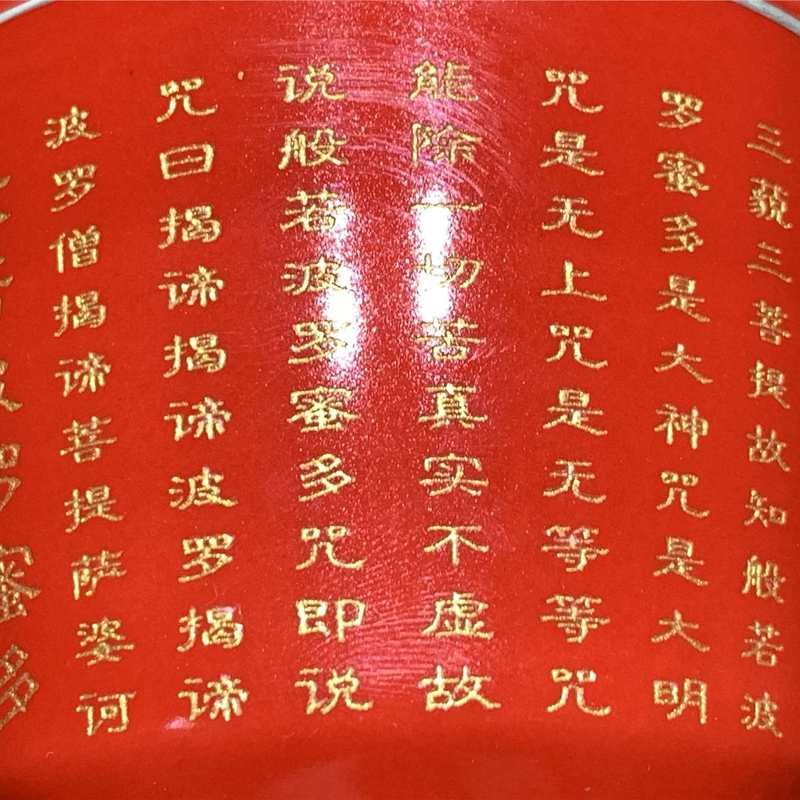 三藐三菩提故知般若波
罗蜜多是大神咒是大明
咒是无上咒是无等等咒
能除一切苦真实不虚故
说般若波罗蜜多咒即说
咒曰揭谛揭谛波罗揭谛
波罗僧揭谛菩提萨婆诃
蜜多